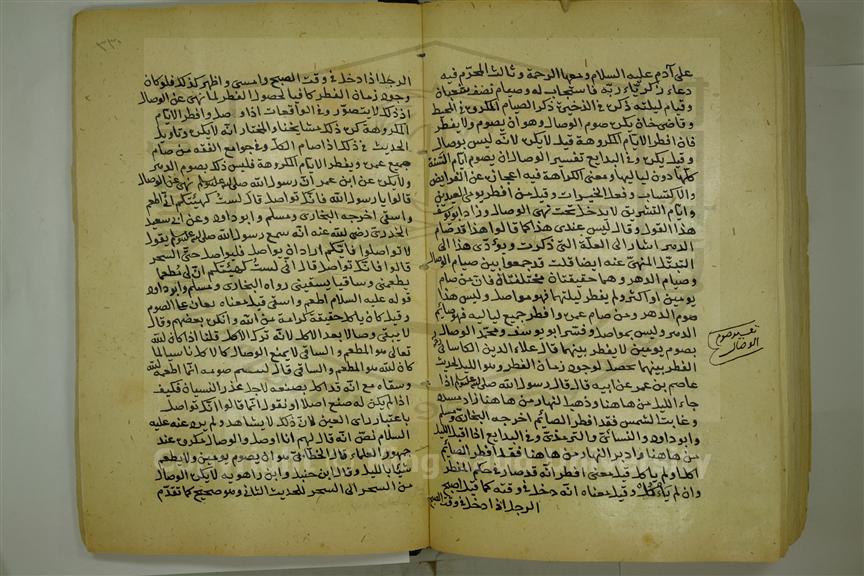 على آدم عليه السلام ومعها الرحمة وثالث المحرم فيه
دعاء زكرياء ربه فاستجاب له وصيام نصف شعبان
وقيام ليلته ذكره في الذخيرة ذكر الصيام المكروه في المحيط
وقاضي خان يكره صوم الوصال وهو ان يصوم ولا يفطر
فان افطر الايام المكروهة قيل لا يكره لانه ليس بوصال
وقيل يكره وفي البدايع تفسير الوصال ان يصوم ايام السنة
كلها دون لياليها ومعنى الكراهة فيه اعجازه عن الفرايض
والاكتساب وفعل الخيرات وقيل من افطر يومي العيدين
وايام التشريق لا يدخل تحت نهي الوصال ورد ابو يوسف
هذا القول وقال ليس عندي هذا كما قالوا هذا قد صام
الدهر اشار الى العلة التي ذكرت ويؤدي هذا الى
التبتل المنهي عنه ايضا قلت قد جمعوا بين صيام الوصال
وصيام الدهر وهما حقيقتان مختلفتان فان من صام
يومين او اكثر ولم يفطر ليلتها فهو مواصل وليس هذا
صوم الدهر ومن صام عمره وافطر جميع لياليه فهو صايم
الدهر وليس بمواصل وفسر ابو يوسف ومحمد الوصال
بصوم يومين لا يفطر بينهما قال علاء الدين الكاساني
الفطر بينهما يحصل لوجود زمان الفطر وهو الليل لحديث
عاصم بن عمر عن ابيه قال قال رسول الله صلى الله عليه وسلم اذا
جاء الليل من هاهنا وذهب النهار من هاهنا زاد مسلم
وغابت الشمس فقد افطر الصايم اخرجه البخاري ومسلم
وابو داود والنسائي والترمذي وفي البدايع اذا اقبل الليل
من هاهنا وادبر النهار من هاهنا فقد افطر الصايم
اكل او لم ياكل قيل معنى افطر انه قد صار في حكم المفطر
وان لم ياكل وقيل معناه انه دخل في وقته كما قيل اصبح
الرجل اذا دخل في وقت الصبح
تفسير صوم
الوصال
الرجل اذا دخل في وقت الصبح وامسى واظهر كذلك فلو كان
وجود زمان الفطر كافيا لحصول الفطر لما نهى عن الوصال
اذ ذلك لا يتصور وفي الواقعات اذا وصل وافطر الايام
المكروهة كره ذلك مشايخنا والمختار انه لا يكره وتاويل
الحديث في ذلك اذا صام الكل وفي جوامع الفقه من صام
جميع عمره ويفطر الايام المكروهة فليس ذلك بصوم الدهر
ولا يكره عن ابن عمر ان رسول الله صلى الله عليه وسلم نهى عن الوصال
قالوا يا رسول الله فانك تواصل قال لست كهيئتكم اني اطعم
واسقى اخرجه البخاري ومسلم وابو داود وعن ابي سعيد
الخدري رضي الله عنه انه سمع رسول الله صلى الله عليه وسلم يقول
لا تواصلوا فايكم اراد ان يواصل فليواصل حتى السحر
قالوا فانك تواصل قال اني لست كهيئتكم ان لي مطعما
يطعمني وساقيا يسقيني رواه البخاري ومسلم وابو داود
قوله عليه السلام اطعم واسقى قيل معناه يعان على الصوم
وقيل كان ياكل حقيقة كرامة من الله وانكره بعضهم وقال
لا يبقى وصالا بعد الاكل لانه ترك الاكل قلنا اذا كان الله
تعالى هو المطعم والساقي لا يمنع الوصال كالاكل ناسيا لما
كان الله هو المطعم والساقي قال تم صومه انما اطعمه الله
وسقاه مع انه قد اكل بصنعه لاجل عذر النسيان فكيف
اذا لم يكن له صنع اصلا او نقول انما قالوا انك تواصل
باعتبار راى العين لان ذلك لا يشاهد ولم يرد عنه عليه
السلام نص انه قال لهم انا اوصل والوصال مكروه عند
جمهور العلماء قال الخطابي هو ان يصوم يومين ولا يطعم
شيا بالليل وقال ابن حنبل وابن راهويه لا يكره الوصال
من السحر الى السحر للحديث الثاني وهو صحيح كما تقدم